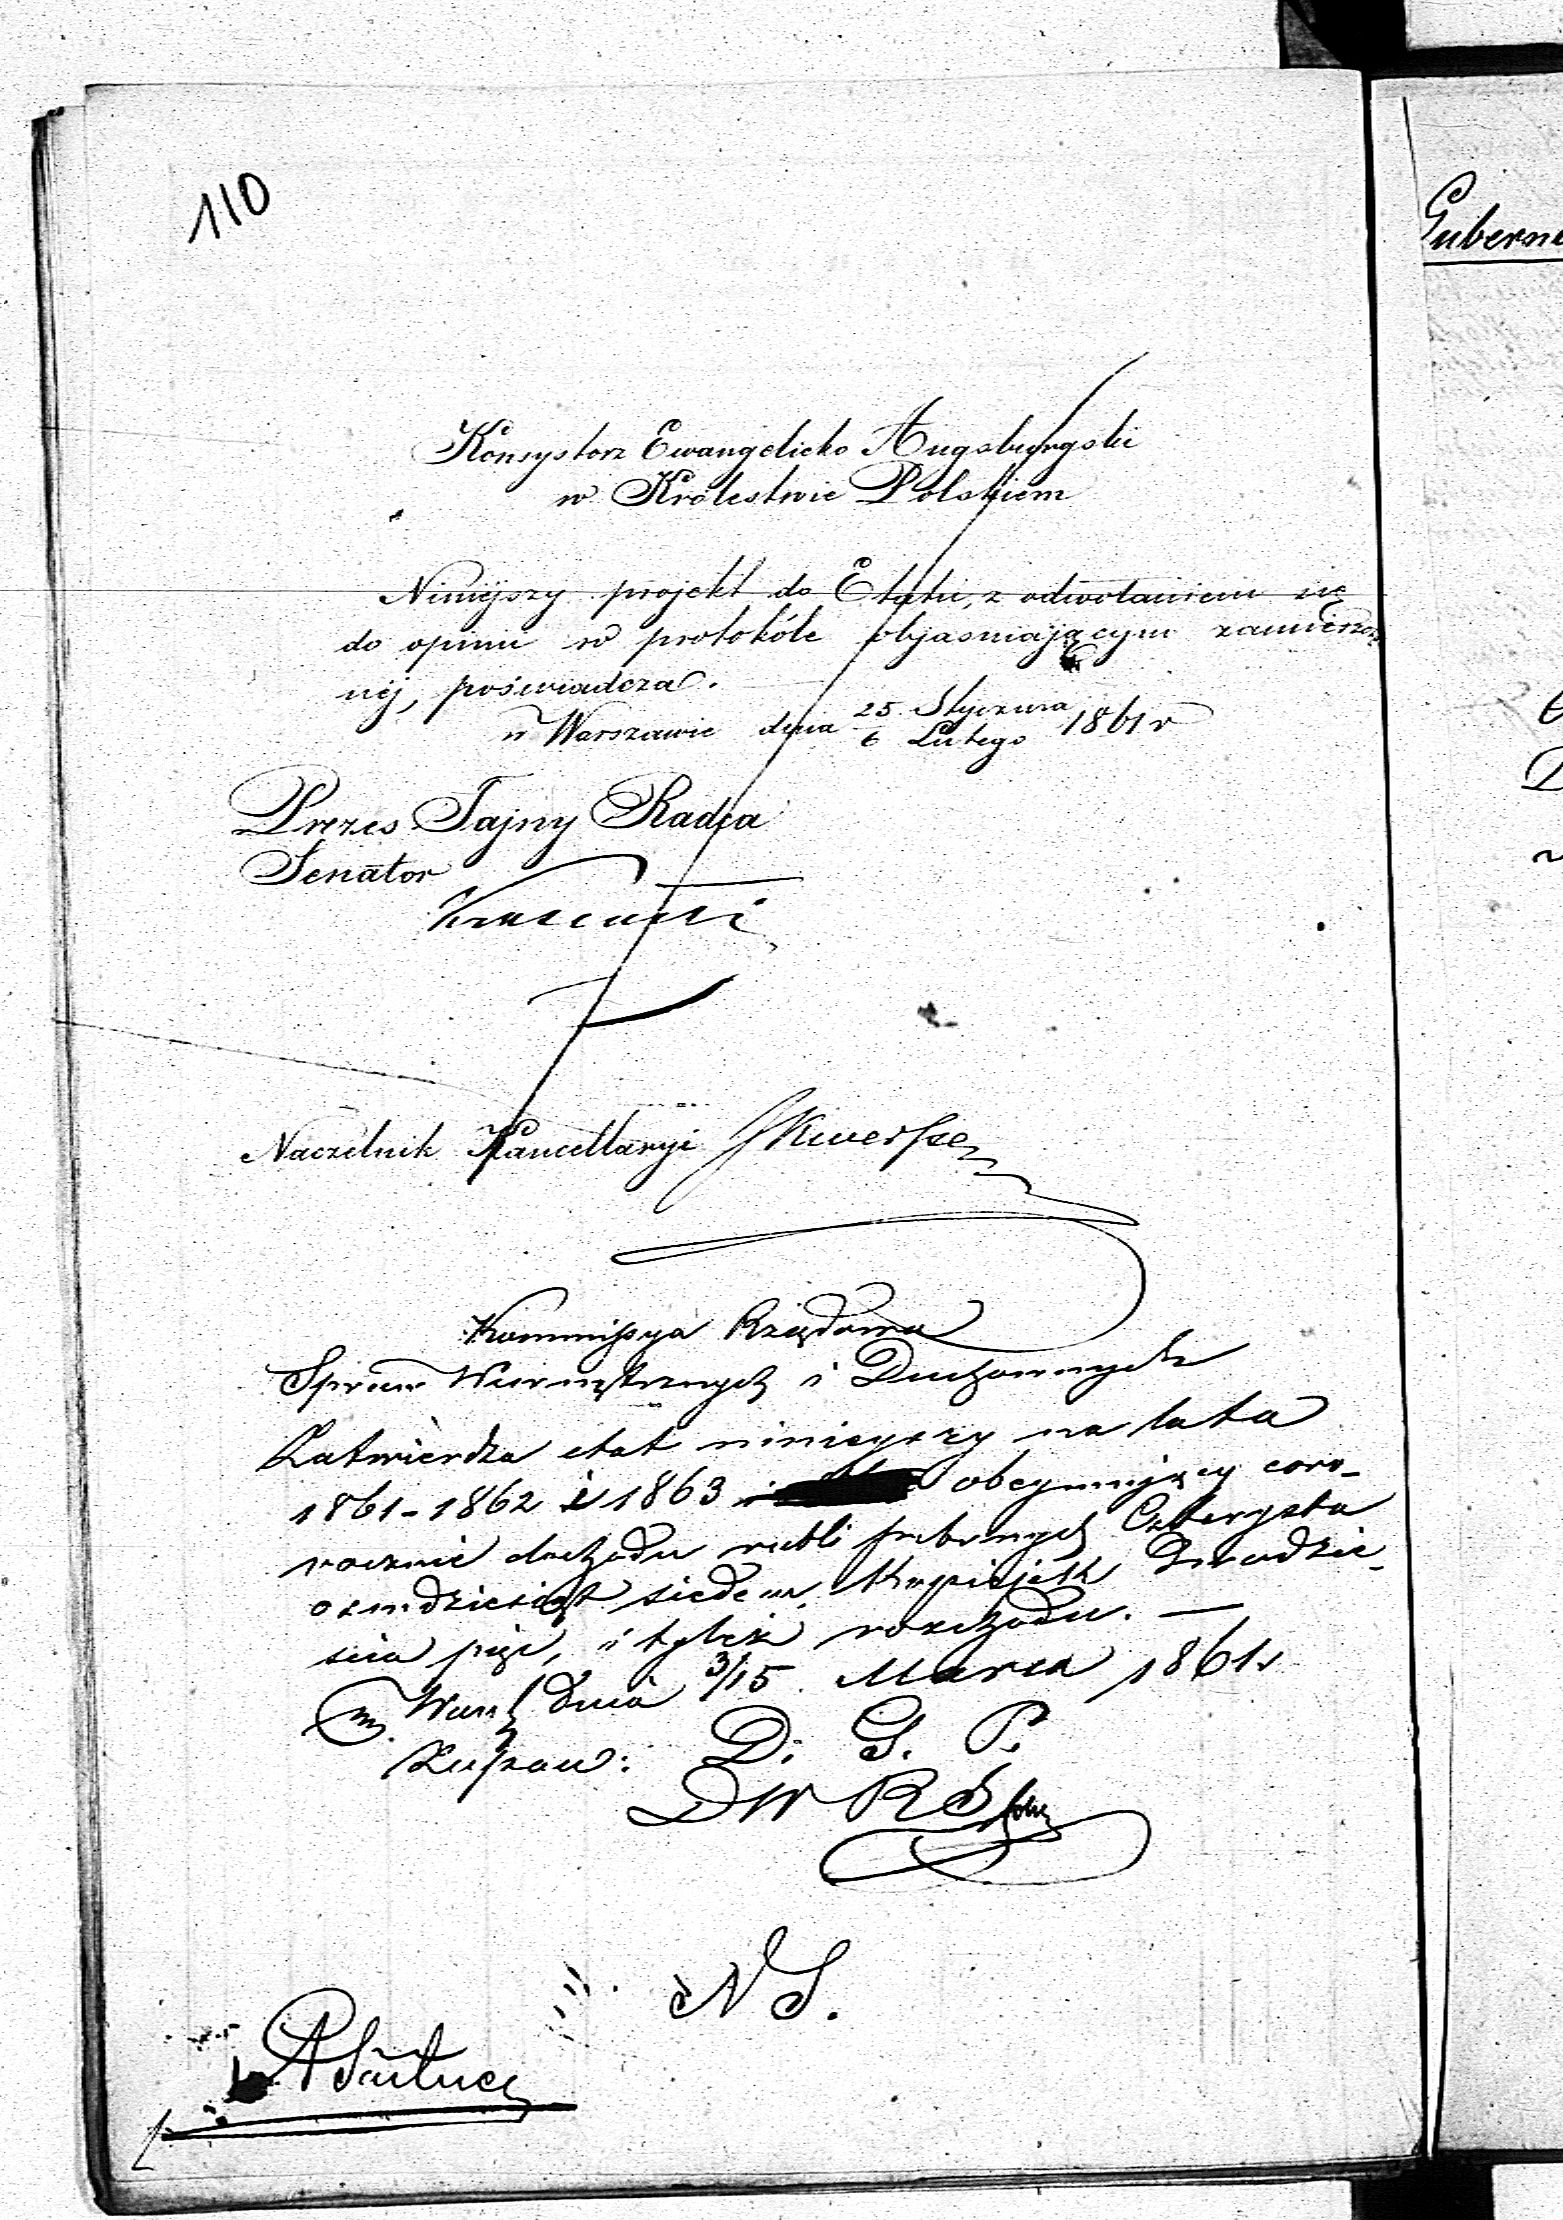 110
Konsystorz Ewangelicko Augsburgski
w Królestwie Polskiem
Niniejszy projekt do Etatu, z odwołaniem się
do opinii w protokóle objasniającym zamieszczo
nej, poświadcza.
w Warszawie dnia 25 Stycznia / 6 Lutego 1861 r
Prezes Tajny Radca
Senator
Naczelnik Kancellaryi
Kommissya Rządowa
Spraw Wewnętrznych i Duchownych
Zatwierdza etat niniejszy na lata
1861 - 1862 i 1863 obejmujący coro-
rocznie dochodu rubli srebrnych Czterysta
osmdziesiąt siedem, kopiejek Dwadzie-
scia pięć, i tyleż rozchodu. —
w Warsz Dnia 3/15 Marca 1861 r
D. G. P.
D W R S
N S.
Guberni